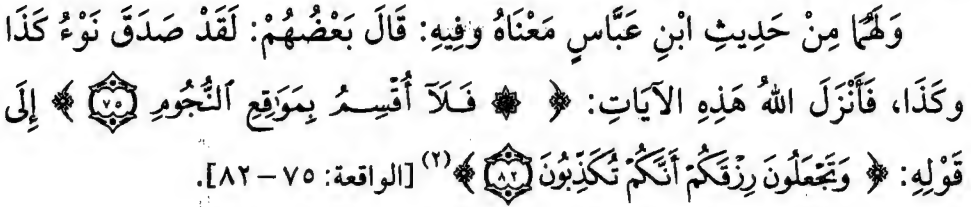 وَلَهُمَا مِنْ حَدِيثِ ابْنِ عَبَّاسٍ مَعْنَاهُ وَفِيهِ: قَالَ بَعْضُهُمْ: لَقَدْ صَدَقَ نَوْءُ كَذَا
وكَذَا، فَأَنْزَلَ اللهُ هَذِهِ الآيَاتِ: ﴿ ۞ فَلَآ أُقْسِمُ بِمَوَٰقِعِ ٱلنُّجُومِ ٧٥ ﴾ إِلَى
قَوْلِهِ: ﴿ وَتَجْعَلُونَ رِزْقَكُمْ أَنَّكُمْ تُكَذِّبُونَ ٨٢ ﴾(٢) [الواقعة: ٧٥ – ٨٢].